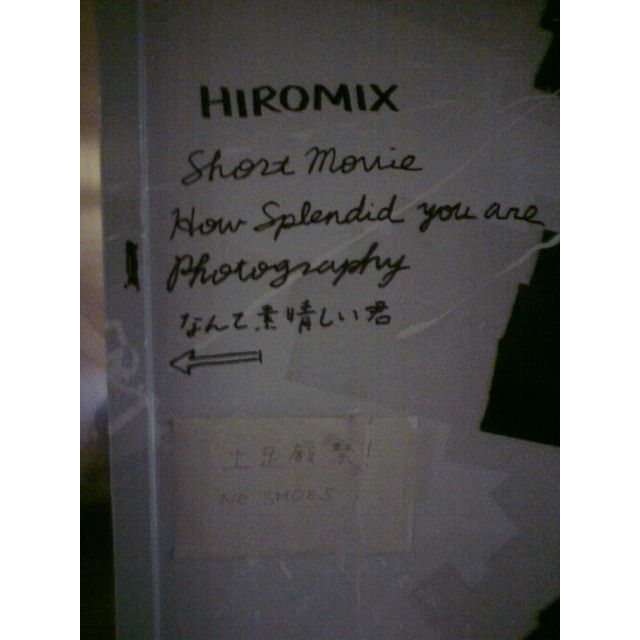 HIROMIX
Short Movie
How Splendid you are
Photography
なんて素晴しい君
土足厳禁!
NO SHOES